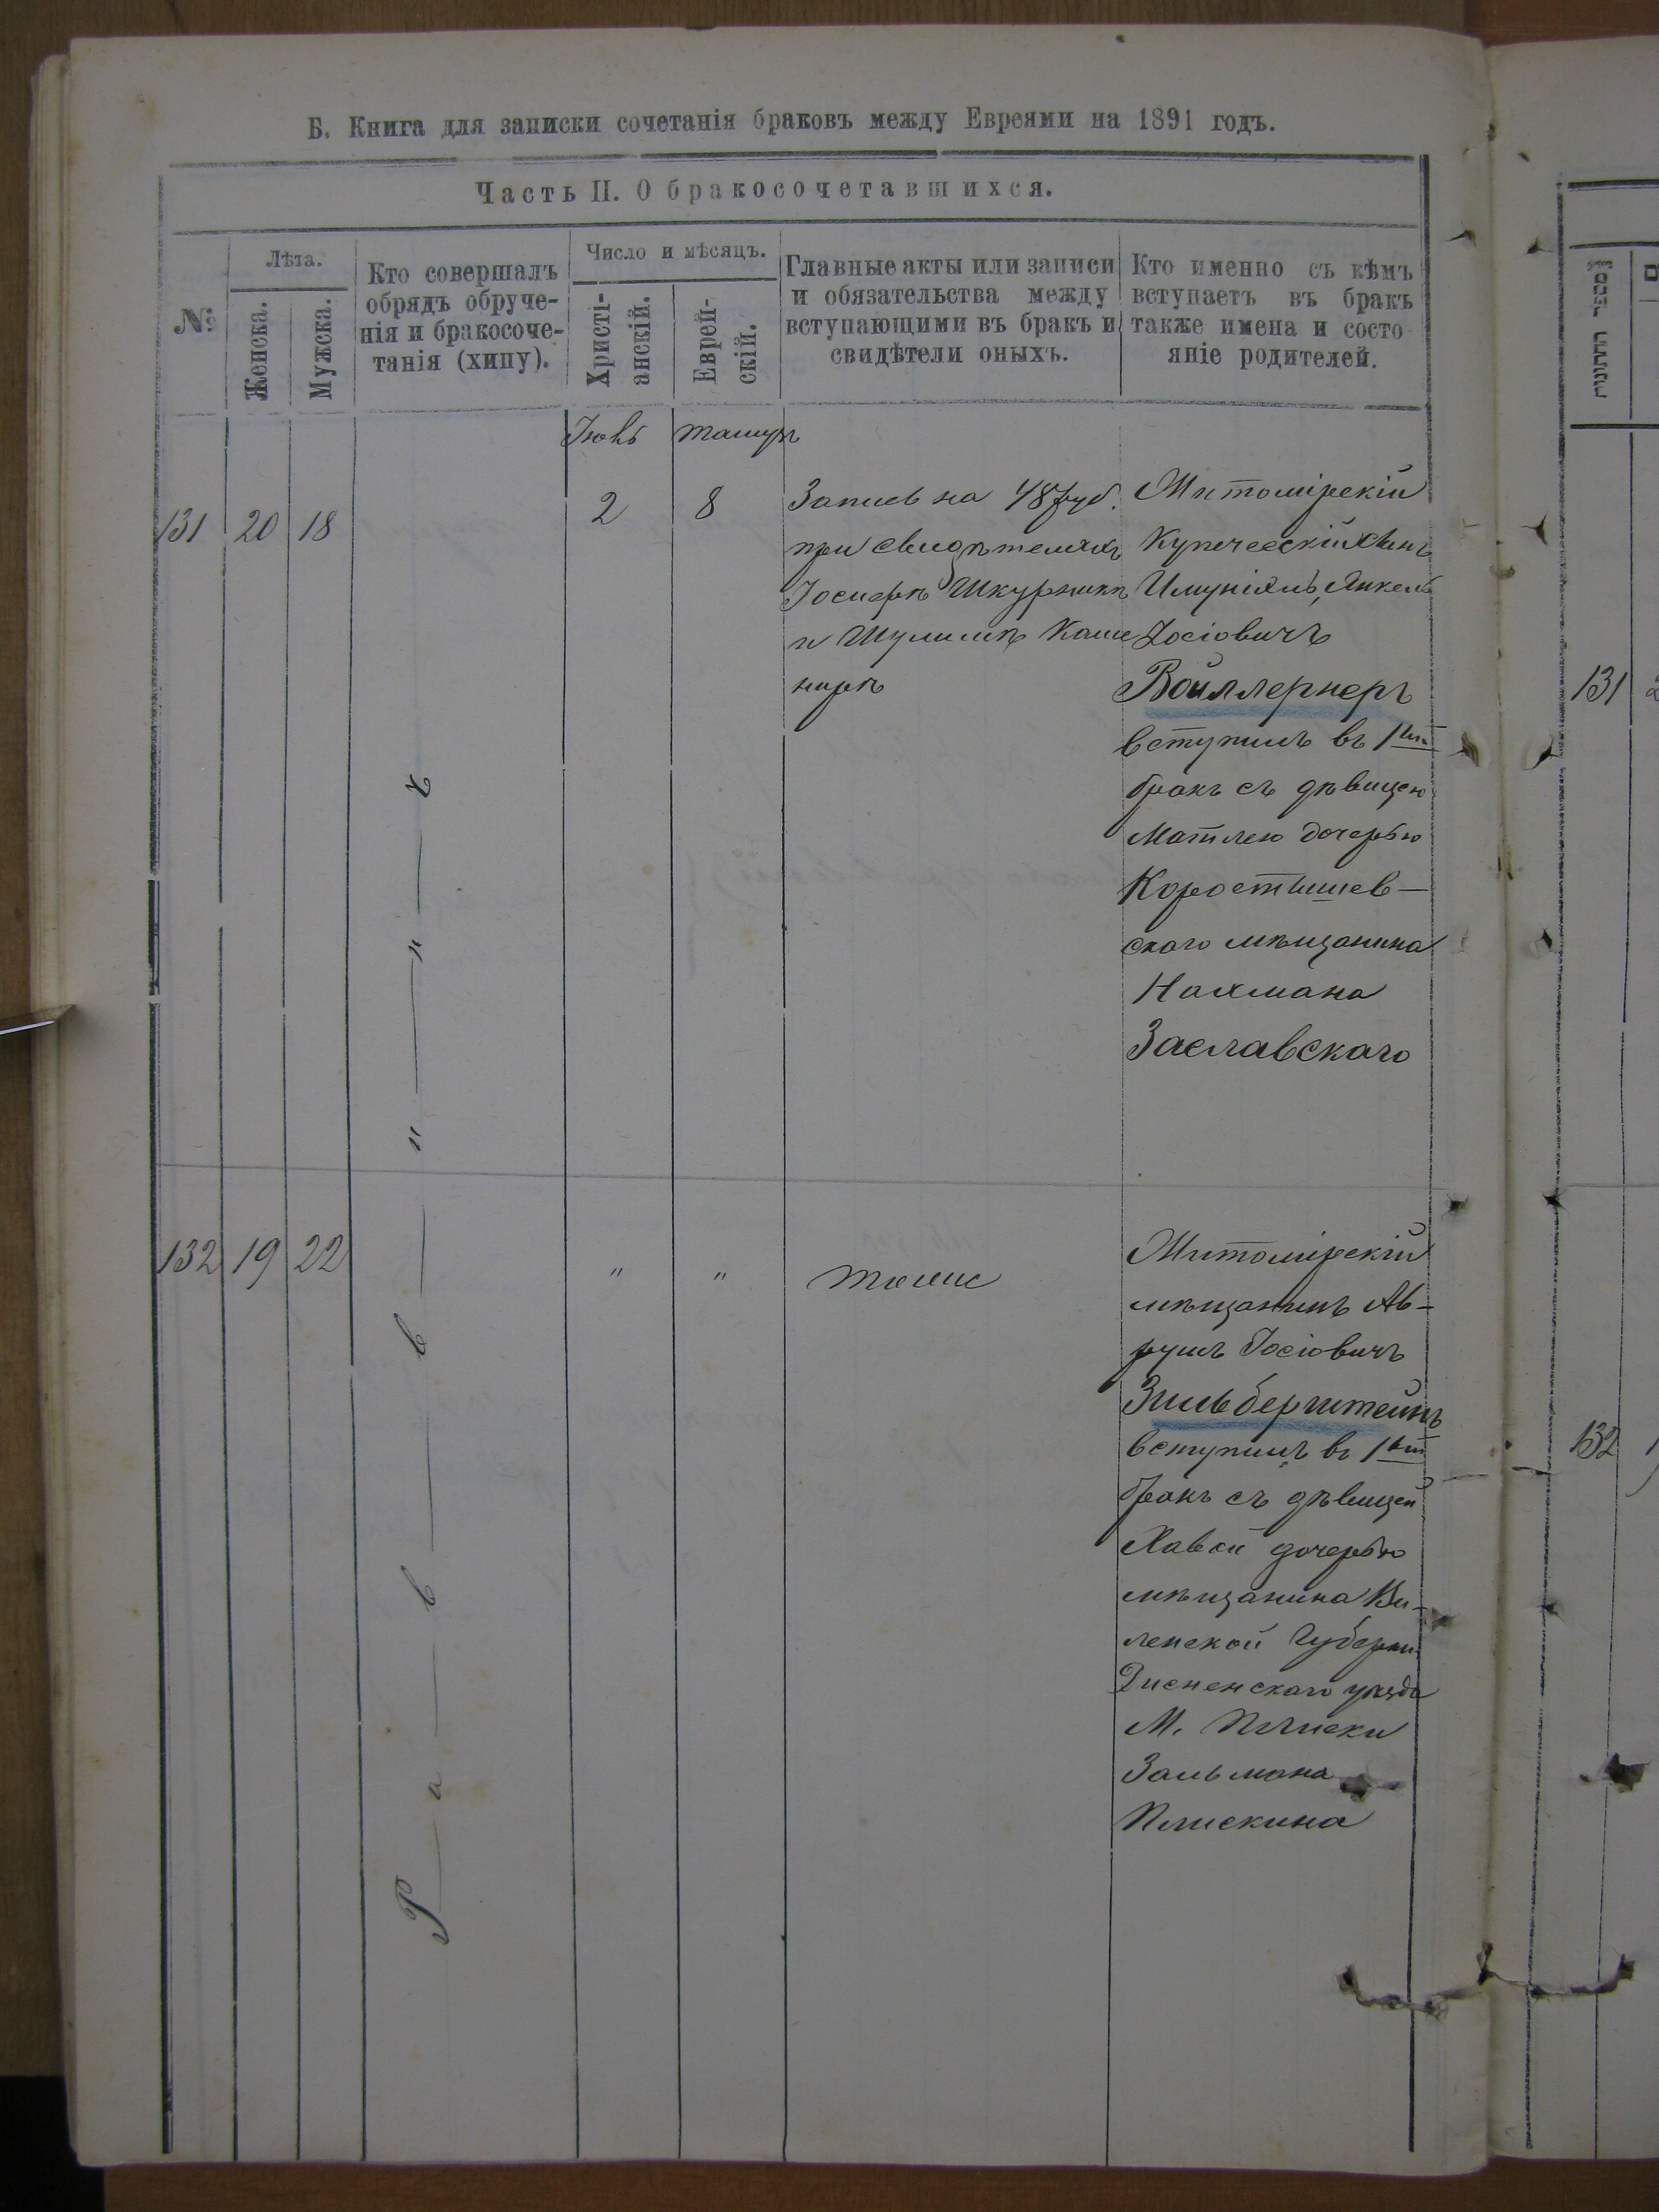 Б. Книга для записки сочетанія браковъ между Евреями на 1891 годъ.
Часть II. О бракосочетавшихся.
№
Лѣта.
Женска.
Мужска.
Кто совершалъ
обрядъ обруче-
нія и бракосоче-
танія (хипу).
Число и мѣсяцъ.
Христі-
анскій.
Еврей-
скій.
Главные акты или записи
и обязательства между
вступающими въ бракъ и
свидѣтели оныхъ.
Кто именно съ кѣмъ
вступаетъ въ бракъ
также имена и состо
яніе родителей.
131
20
18
2
8
Запись на 48 руб.
при свидѣтеляхъ
Іосифѣ Шкурникѣ
и Шулимѣ Каше
нирѣ
Житомірскій
Купеческій сынъ
Янкель
Іосіовичъ
Войллернеръ
вступилъ въ 1ый
бракъ съ дѣвицею
Матлею дочерью
Коростышев-
скаго мѣщанина
Нахмана
Заславскаго
132
19
22
"
"
тоже
Житомірскій
мѣщанинъ Ав-
румъ Іосіовичъ
Зильберштейнъ
вступилъ въ 1ый
бракъ съ дѣвицей
Хавой дочерью
мѣщанина Ви-
ленской Губерни
Дисненскаго уѣзда
М. Плиски
Зальмана
Плискина
Р а в в " " "
131
132